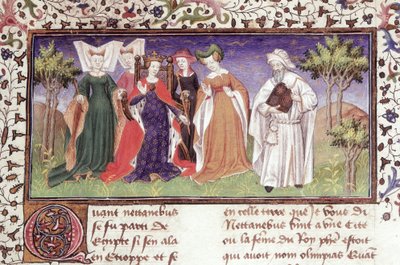 Quant nettanebus
se fu parti de
Egipte si sen ala
en Etioppe et se
en celle terre que Je vous di
Nettanebus vint a une Cite
ou la feme du roy phe estoit
qui auoit nom olimpias Quāt